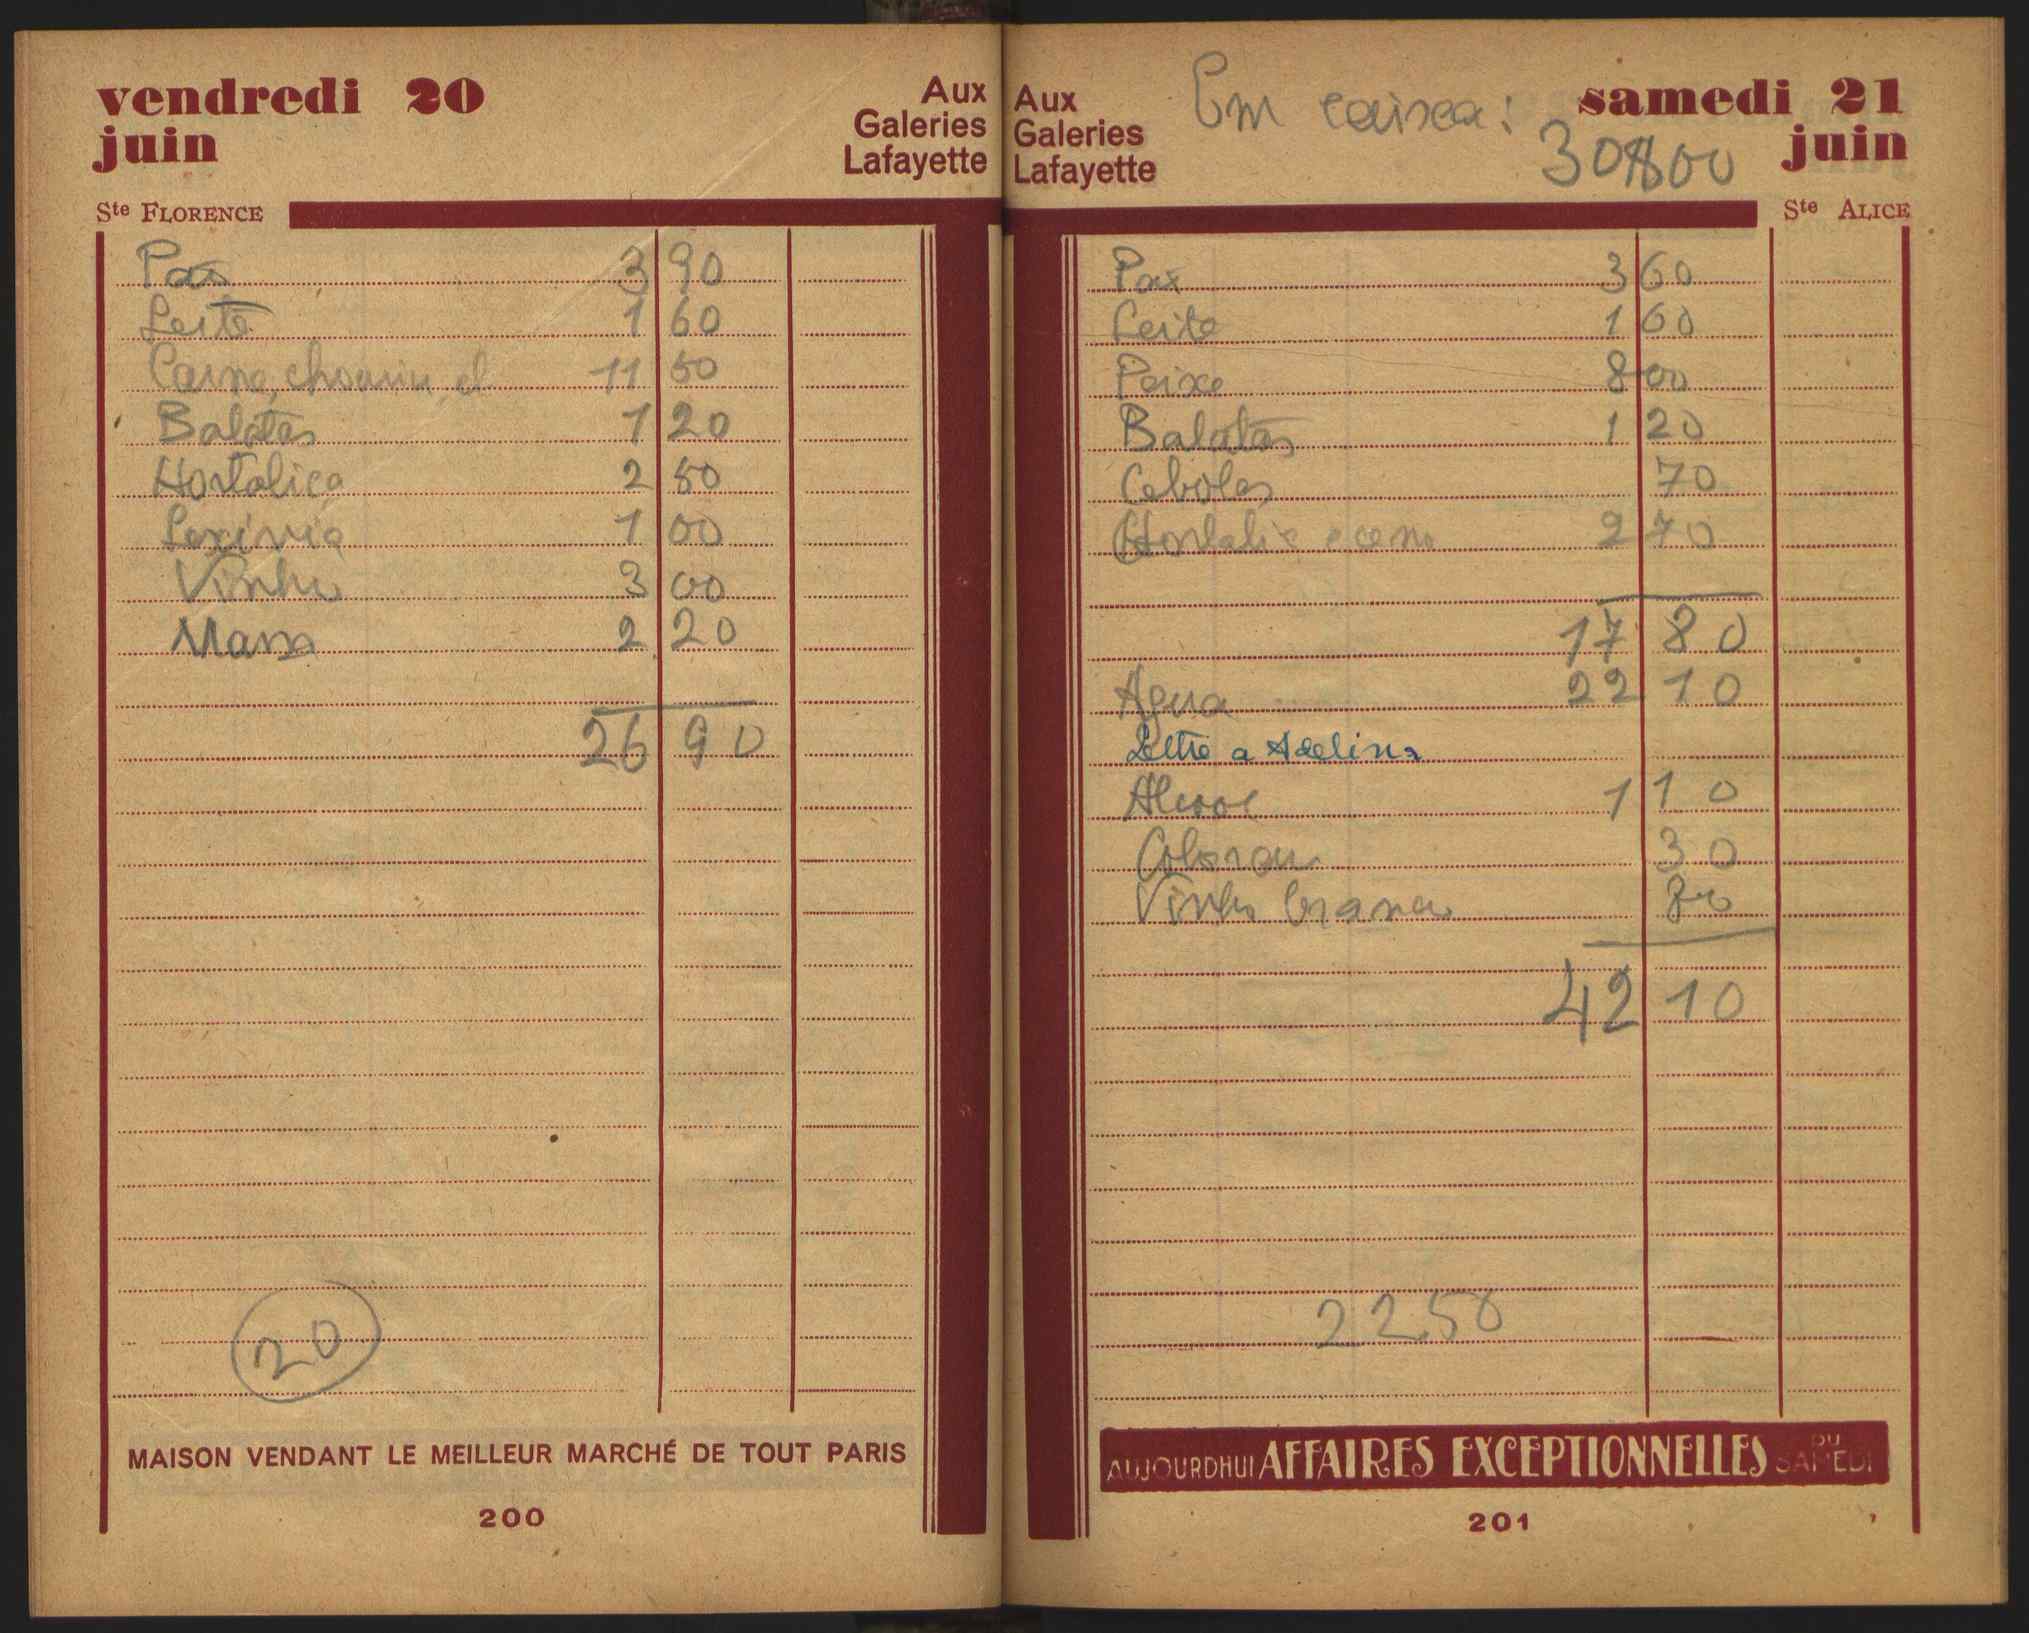 vendredi 20
juin
Aux
Galeries
Lafayette
Ste FLORENCE
Pão 3 90
Leite 1 60
Carne, chouriço, et 11 50
Batatas 1 20
Hortaliça 2 50
Lexívia 1 00
Vinho 3 00
Massa 2 20
26 90
20
MAISON VENDANT LE MEILLEUR MARCHÉ DE TOUT PARIS
200
Aux
Galeries
Lafayette
Em caixa:
30$00
samedi 21
juin
Ste ALICE
Pão 3 60
Leite 1 60
Peixe 8 00
Batatas 1 20
Cebolas 70
Hortaliç 2 70
17 80
Agua 22 10
Lettre a Adelina
Alcool 1 10
Colorau 30
Vinho branco 80
42 10
22 50
AUJOURDHUI AFFAIRES EXCEPTIONNELLES DU SAMEDI
201